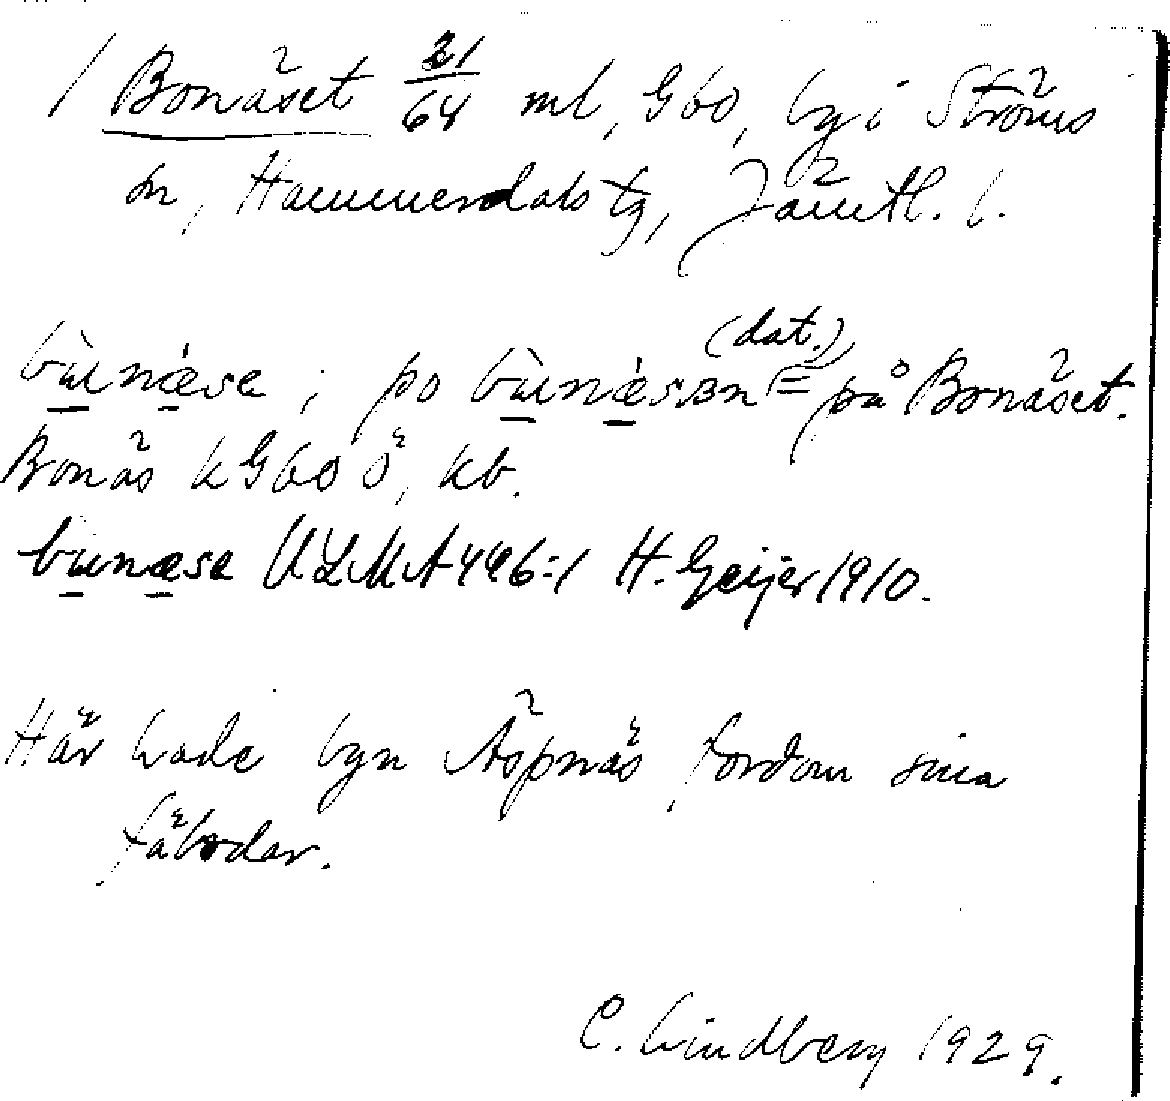 / Bonäset 21/64 ml, G60, by i Ströms
sn, Hammerdals tg, Jämtl. l.
(dat.)
bùnæ̀se ; po bùnæ̀sᴈn = på Bonäset.
Bonäs kG60 Ö, kb.
bùnæse ULMA 446:1 H. Geijer 1910.
Här hade byn Äspnäs fordom sina
fäbodar.
C. Lindberg 1929.